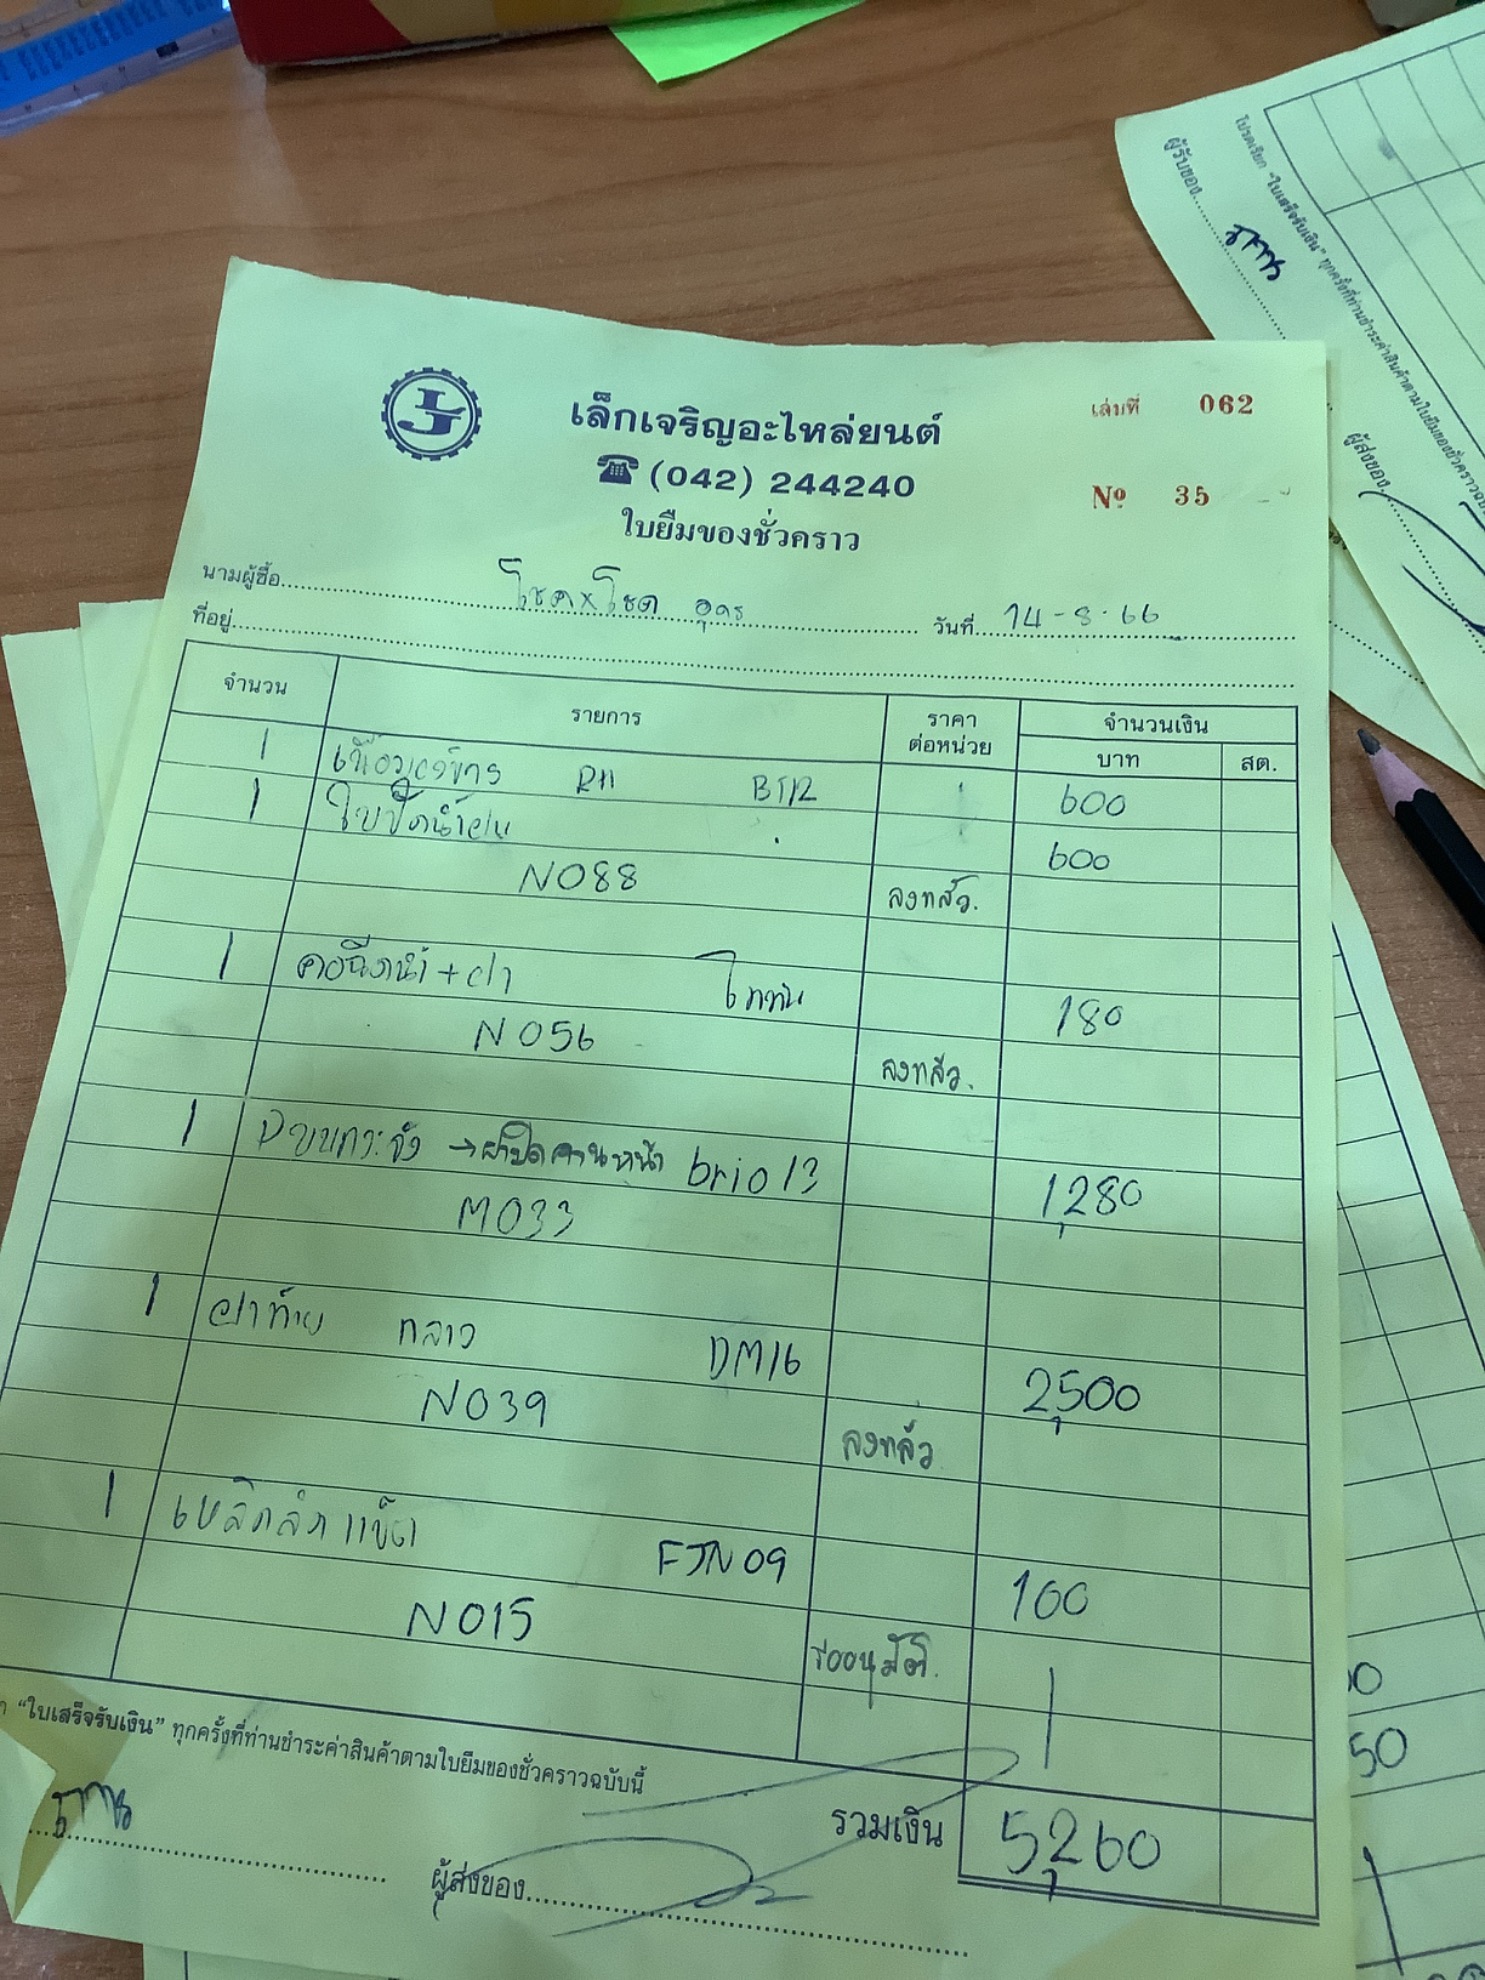 เล็กเจริญอะไหล่ยนต์
เล่มที่ 062
☎ (042) 244240
№ 35
ใบยืมของชั่วคราว
นามผู้ซื้อ โชคxโชค อุดร วันที่ 14-8-66
ที่อยู่
จำนวน รายการ ราคาต่อหน่วย จำนวนเงิน
บาท สต.
1 RH BT12 600
1 ใบปัดน้ำฝน 600
N088 ลงแล้ว.
1 คอฉีดน้ำ+ฝา ไททัน 180
N056 ลงแล้ว.
1 → ฝาปิดคานหน้า brio 13 1,280
M033
1 ฝาท้าย กลาง DM16 2,500
N039 ลงแล้ว
1 เหล็กล๊อกแบ็ต FTN09 100
N015 รออนุมัติ.
"ใบเสร็จรับเงิน" ทุกครั้งที่ท่านชำระค่าสินค้าตามใบยืมของชั่วคราวฉบับนี้
รวมเงิน 5,260
ผู้ส่งของ
ผู้รับของ
โปรดเรียก "ใบเสร็จรับเงิน" ทุกครั้งที่ท่านชำระค่าสินค้าตามใบยืมของชั่วคราว
ผู้ส่งของ
50